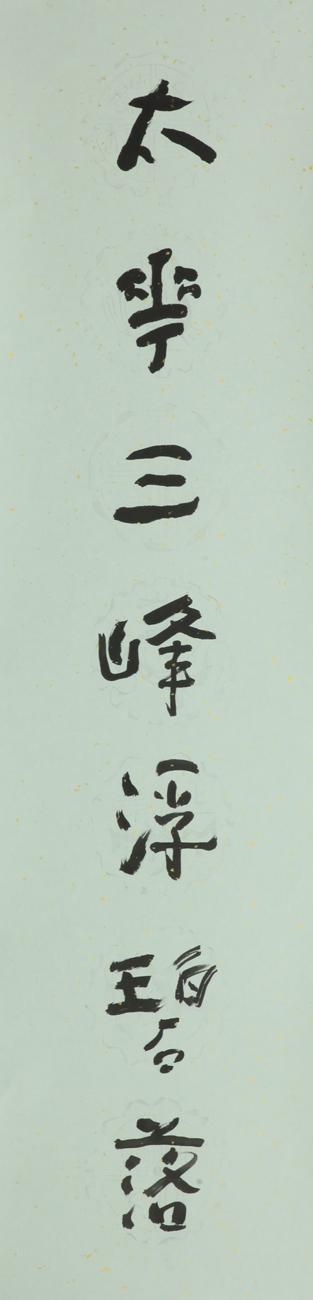 太華三峰浮碧落